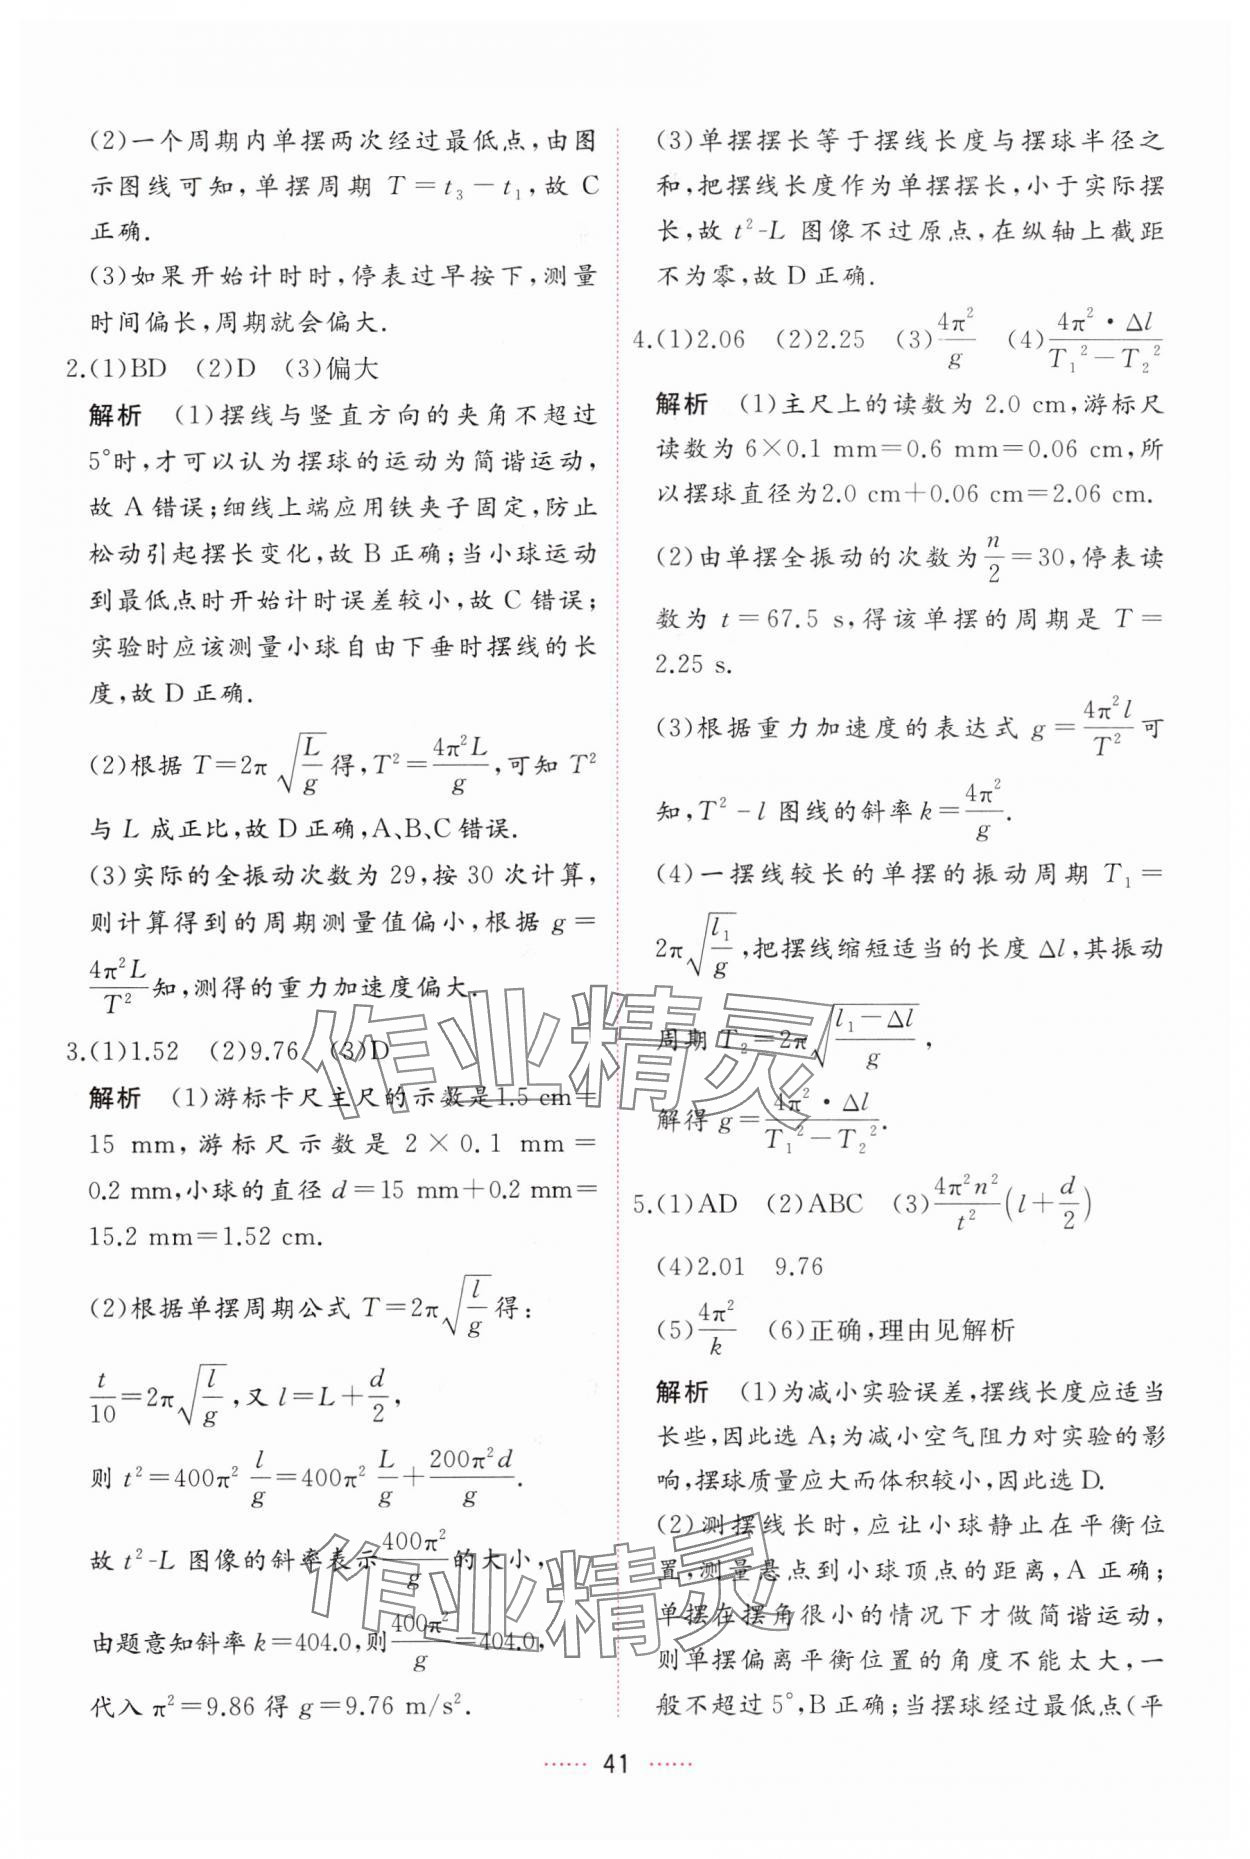 (2)一个周期内单摆两次经过最低点,由图
示图线可知,单摆周期 T=t₃-t₁,故 C
正确.
(3)如果开始计时时,停表过早按下,测量
时间偏长,周期就会偏大.
2.(1)BD (2)D (3)偏大
解析 (1)摆线与竖直方向的夹角不超过
5°时,才可以认为摆球的运动为简谐运动,
故 A 错误;细线上端应用铁夹子固定,防止
松动引起摆长变化,故 B 正确;当小球运动
到最低点时开始计时误差较小,故 C 错误;
实验时应该测量小球自由下垂时摆线的长
度,故 D 正确.
(2)根据 T=2π√(L/g)得,T²=4π²L/g,可知 T²
与 L 成正比,故 D 正确,A、B、C 错误.
(3)实际的全振动次数为 29,按 30 次计算,
则计算得到的周期测量值偏小,根据 g=
4π²L/T²知,测得的重力加速度偏大.
3.(1)1.52 (2)9.76 (3)D
解析 (1)游标卡尺主尺的示数是1.5 cm=
15 mm,游标尺示数是 2×0.1 mm=
0.2 mm,小球的直径 d=15 mm+0.2 mm=
15.2 mm=1.52 cm.
(2)根据单摆周期公式 T=2π√(l/g)得:
t/10=2π√(l/g),又 l=L+d/2,
则 t²=400π² l/g=400π² L/g+200π²d/g.
故 t²-L 图像的斜率表示400π²/g的大小,
由题意知斜率 k=404.0,则400π²/g=404.0,
代入 π²=9.86 得 g=9.76 m/s².
(3)单摆摆长等于摆线长度与摆球半径之
和,把摆线长度作为单摆摆长,小于实际摆
长,故 t²-L 图像不过原点,在纵轴上截距
不为零,故 D 正确.
4.(1)2.06 (2)2.25 (3)4π²/g (4)4π²·Δl/(T₁²-T₂²)
解析 (1)主尺上的读数为 2.0 cm,游标尺
读数为 6×0.1 mm=0.6 mm=0.06 cm,所
以摆球直径为2.0 cm+0.06 cm=2.06 cm.
(2)由单摆全振动的次数为n/2=30,停表读
数为 t=67.5 s,得该单摆的周期是 T=
2.25 s.
(3)根据重力加速度的表达式 g=4π²l/T²可
知,T²-l 图线的斜率 k=4π²/g.
(4)一摆线较长的单摆的振动周期 T₁=
2π√(l₁/g),把摆线缩短适当的长度 Δl,其振动
周期 T₂=2π√((l₁-Δl)/g),
解得 g=4π²·Δl/(T₁²-T₂²).
5.(1)AD (2)ABC (3)4π²n²/t²(l+d/2)
(4)2.01 9.76
(5)4π²/k (6)正确,理由见解析
解析 (1)为减小实验误差,摆线长度应适当
长些,因此选 A;为减小空气阻力对实验的影
响,摆球质量应大而体积较小,因此选 D.
(2)测摆线长时,应让小球静止在平衡位
置,测量悬点到小球顶点的距离,A 正确;
单摆在摆角很小的情况下才做简谐运动,
则单摆偏离平衡位置的角度不能太大,一
般不超过 5°,B 正确;当摆球经过最低点(平
······ 41 ······
作业精灵
作业精灵